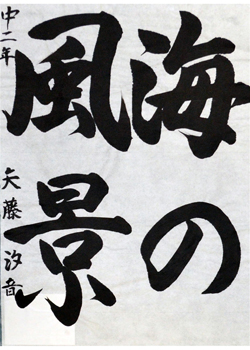 海の
風景
中二年 矢藤汐音